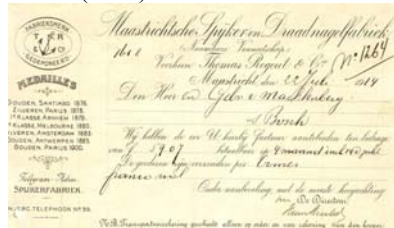 FABRIEKSMERK
T R
& Co
GEDEPONEERD.
MEDAILLES
GOUDEN, SANTIAGO 1875.
ZILVEREN, PARIJS 1878.
1e KLASSE, ARNHEM 1879.
1e KLASSE, MELBOURNE 1880.
ZILVEREN, AMSTERDAM 1883.
GOUDEN, ANTWERPEN 1885.
GOUDEN, PARIJS 1900.
Telegram-Adres:
SPIJKERFABRIEK.
INTERC. TELEPHOON No 99.
Maastrichtsche Spijker en Draadnagelfabriek
Naamlooze Vennootschap
No 1264
Voorheen Thomas Regout & Co
Maastricht den 22 Juli 1914
Den Heer en Gebr v
's Bosch
Wij hebben de eer U hierbij factuur aantebieden ten belange
van f 59.07 betaalbaar op
De goederen zijn verzonden per
franco
Onder aanbeveling, met de meeste hoogachting
De Directeur